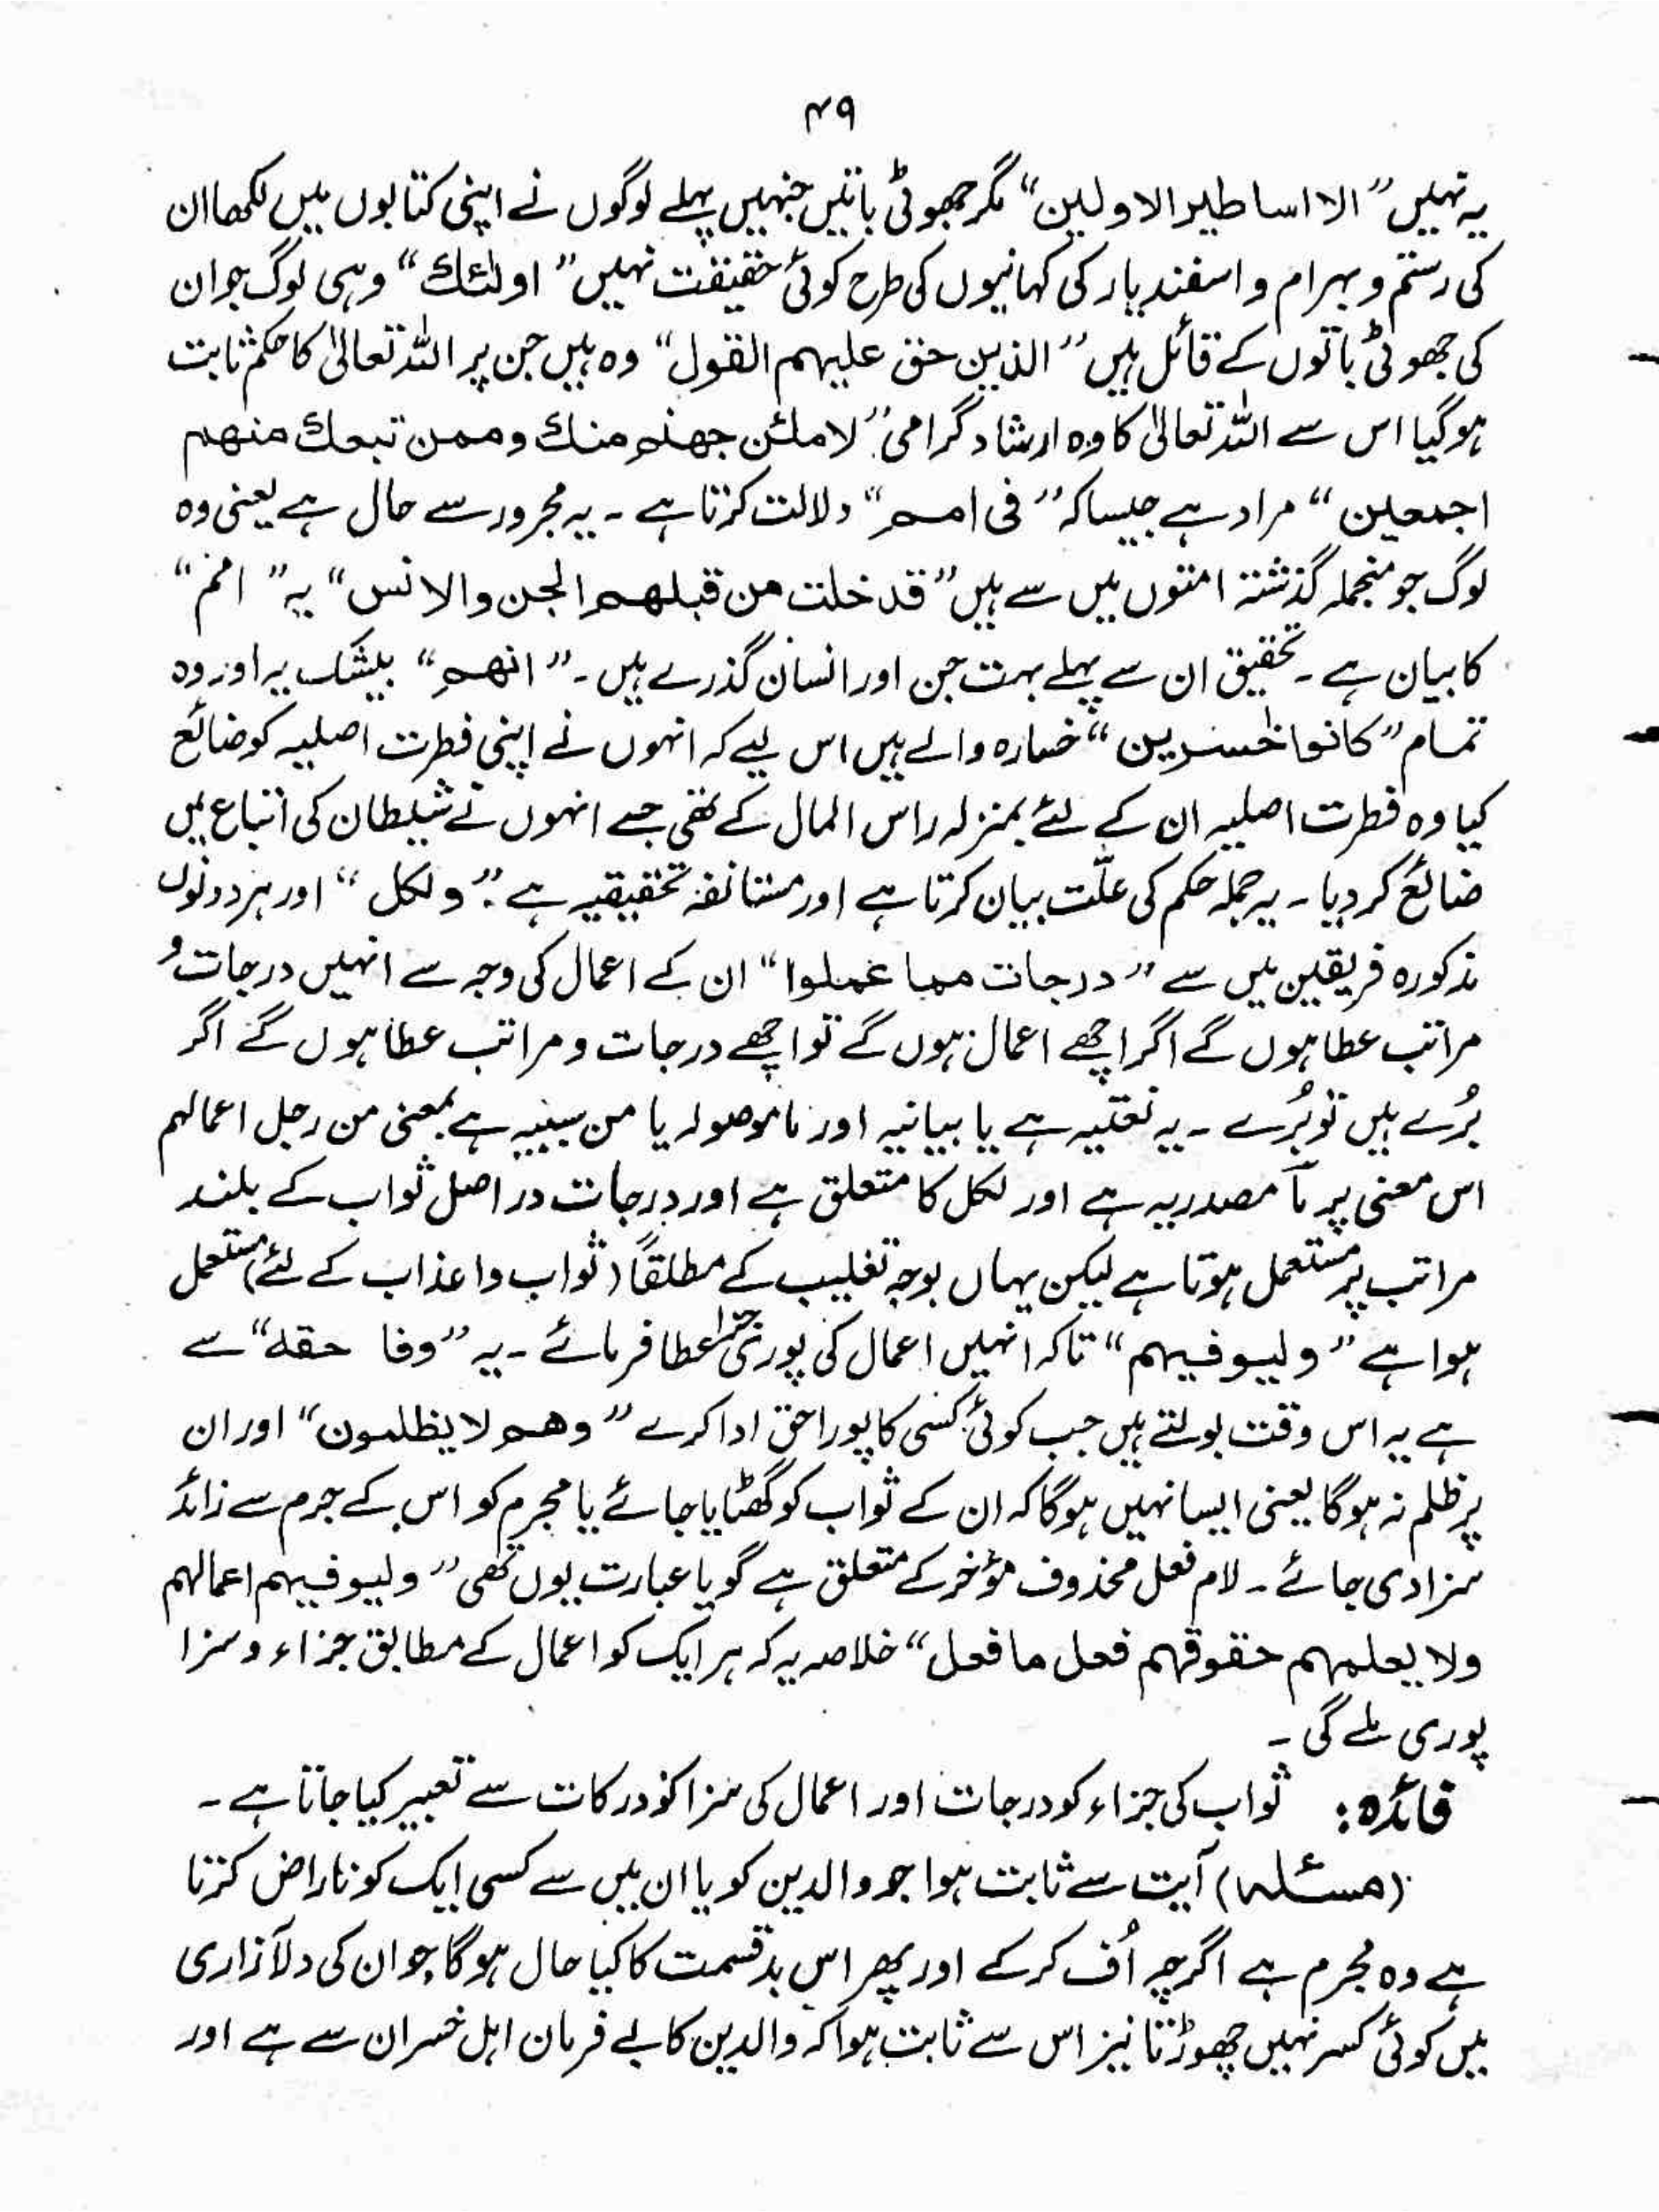 ۴۹
یہ نہیں ”الا اساطیر الاولین“ مگر جھوٹی باتیں جنہیں پہلے لوگوں نے اپنی کتابوں میں لکھا ان
کی رستم و بہرام و اسفندیار کی کہانیوں کی طرح کوئی حقیقت نہیں ”اولٰئك“ وہی لوگ جو ان
کی جھوٹی باتوں کے قائل ہیں ”الذین حق علیہم القول“ وہ ہیں جن پر اللہ تعالیٰ کا حکم ثابت
ہوگیا اس سے اللہ تعالیٰ کا وہ ارشاد گرامی ”لاملئن جهنم منك وممن تبعك منهم
اجمعین“ مراد ہے جیسا کہ ”فی امم“ دلالت کرتا ہے ۔ یہ مجرور سے حال ہے یعنی وہ
لوگ جو منجملہ گذشتہ امتوں میں سے ہیں ”قد خلت من قبلهم الجن والانس“ یہ ”امم“
کا بیان ہے ۔ تحقیق ان سے پہلے بہت جن اور انسان گذرے ہیں ۔ ”انهم“ بیشک یہ اور وہ
تمام ”کانوا خٰسرین“ خسارہ والے ہیں اس لیے کہ انہوں نے اپنی فطرت اصلیہ کو ضائع
کیا وہ فطرت اصلیہ ان کے لئے بمنزلہ راس المال کے تھی جسے انہوں نے شیطان کی اتباع میں
ضائع کر دیا ۔ یہ جملہ حکم کی علّت بیان کرتا ہے اور مستانفہ تحقیقیہ ہے ۔ ”ولکل“ اور ہر دونوں
مذکورہ فریقین میں سے ”درجات مما عملوا“ ان کے اعمال کی وجہ سے انہیں درجات و
مراتب عطا ہوں گے اگر اچھے اعمال ہوں گے تو اچھے درجات و مراتب عطا ہوں گے اگر
بُرے ہیں تو بُرے ۔ یہ نعتیہ ہے یا بیانیہ اور ما موصولہ یا من سببیہ ہے بمعنی من رجل اعمالہم
اس معنی پر مآ مصدریہ ہے اور لکل کا متعلق ہے اور درجات در اصل ثواب کے بلند
مراتب پر مستعمل ہوتا ہے لیکن یہاں بوجہ تغلیب کے مطلقاً (ثواب واعذاب کے لئے) مستعمل
ہوا ہے ”ولیوفیہم“ تاکہ انہیں اعمال کی پوری جزا عطا فرمائے ۔ یہ ”وفا حقه“ سے
ہے یہ اس وقت بولتے ہیں جب کوئی کسی کا پورا حق ادا کرے ”وهم لایظلمون“ اور ان
پر ظلم نہ ہوگا یعنی ایسا نہیں ہوگا کہ ان کے ثواب کو گھٹایا جائے یا مجرم کو اس کے جرم سے زائد
سزا دی جائے ۔ لام فعل محذوف مؤخر کے متعلق ہے گویا عبارت یوں تھی ”ولیوفیہم اعمالہم
ولا یعلمہم حقوقہم فعل ما فعل“ خلاصہ یہ کہ ہر ایک کو اعمال کے مطابق جزاء و سزا
پوری ملے گی ۔
فائدہ: ثواب کی جزاء کو درجات اور اعمال کی سزا کو درکات سے تعبیر کیا جاتا ہے ۔
(مسئلہ) آیت سے ثابت ہوا جو والدین کو یا ان میں سے کسی ایک کو ناراض کرتا
ہے وہ مجرم ہے اگرچہ اُف کرکے اور پھر اس بدقسمت کا کیا حال ہوگا جو ان کی دلآزاری
میں کوئی کسر نہیں چھوڑتا نیز اس سے ثابت ہوا کہ والدین کا بے فرمان اہل خسران سے ہے اور